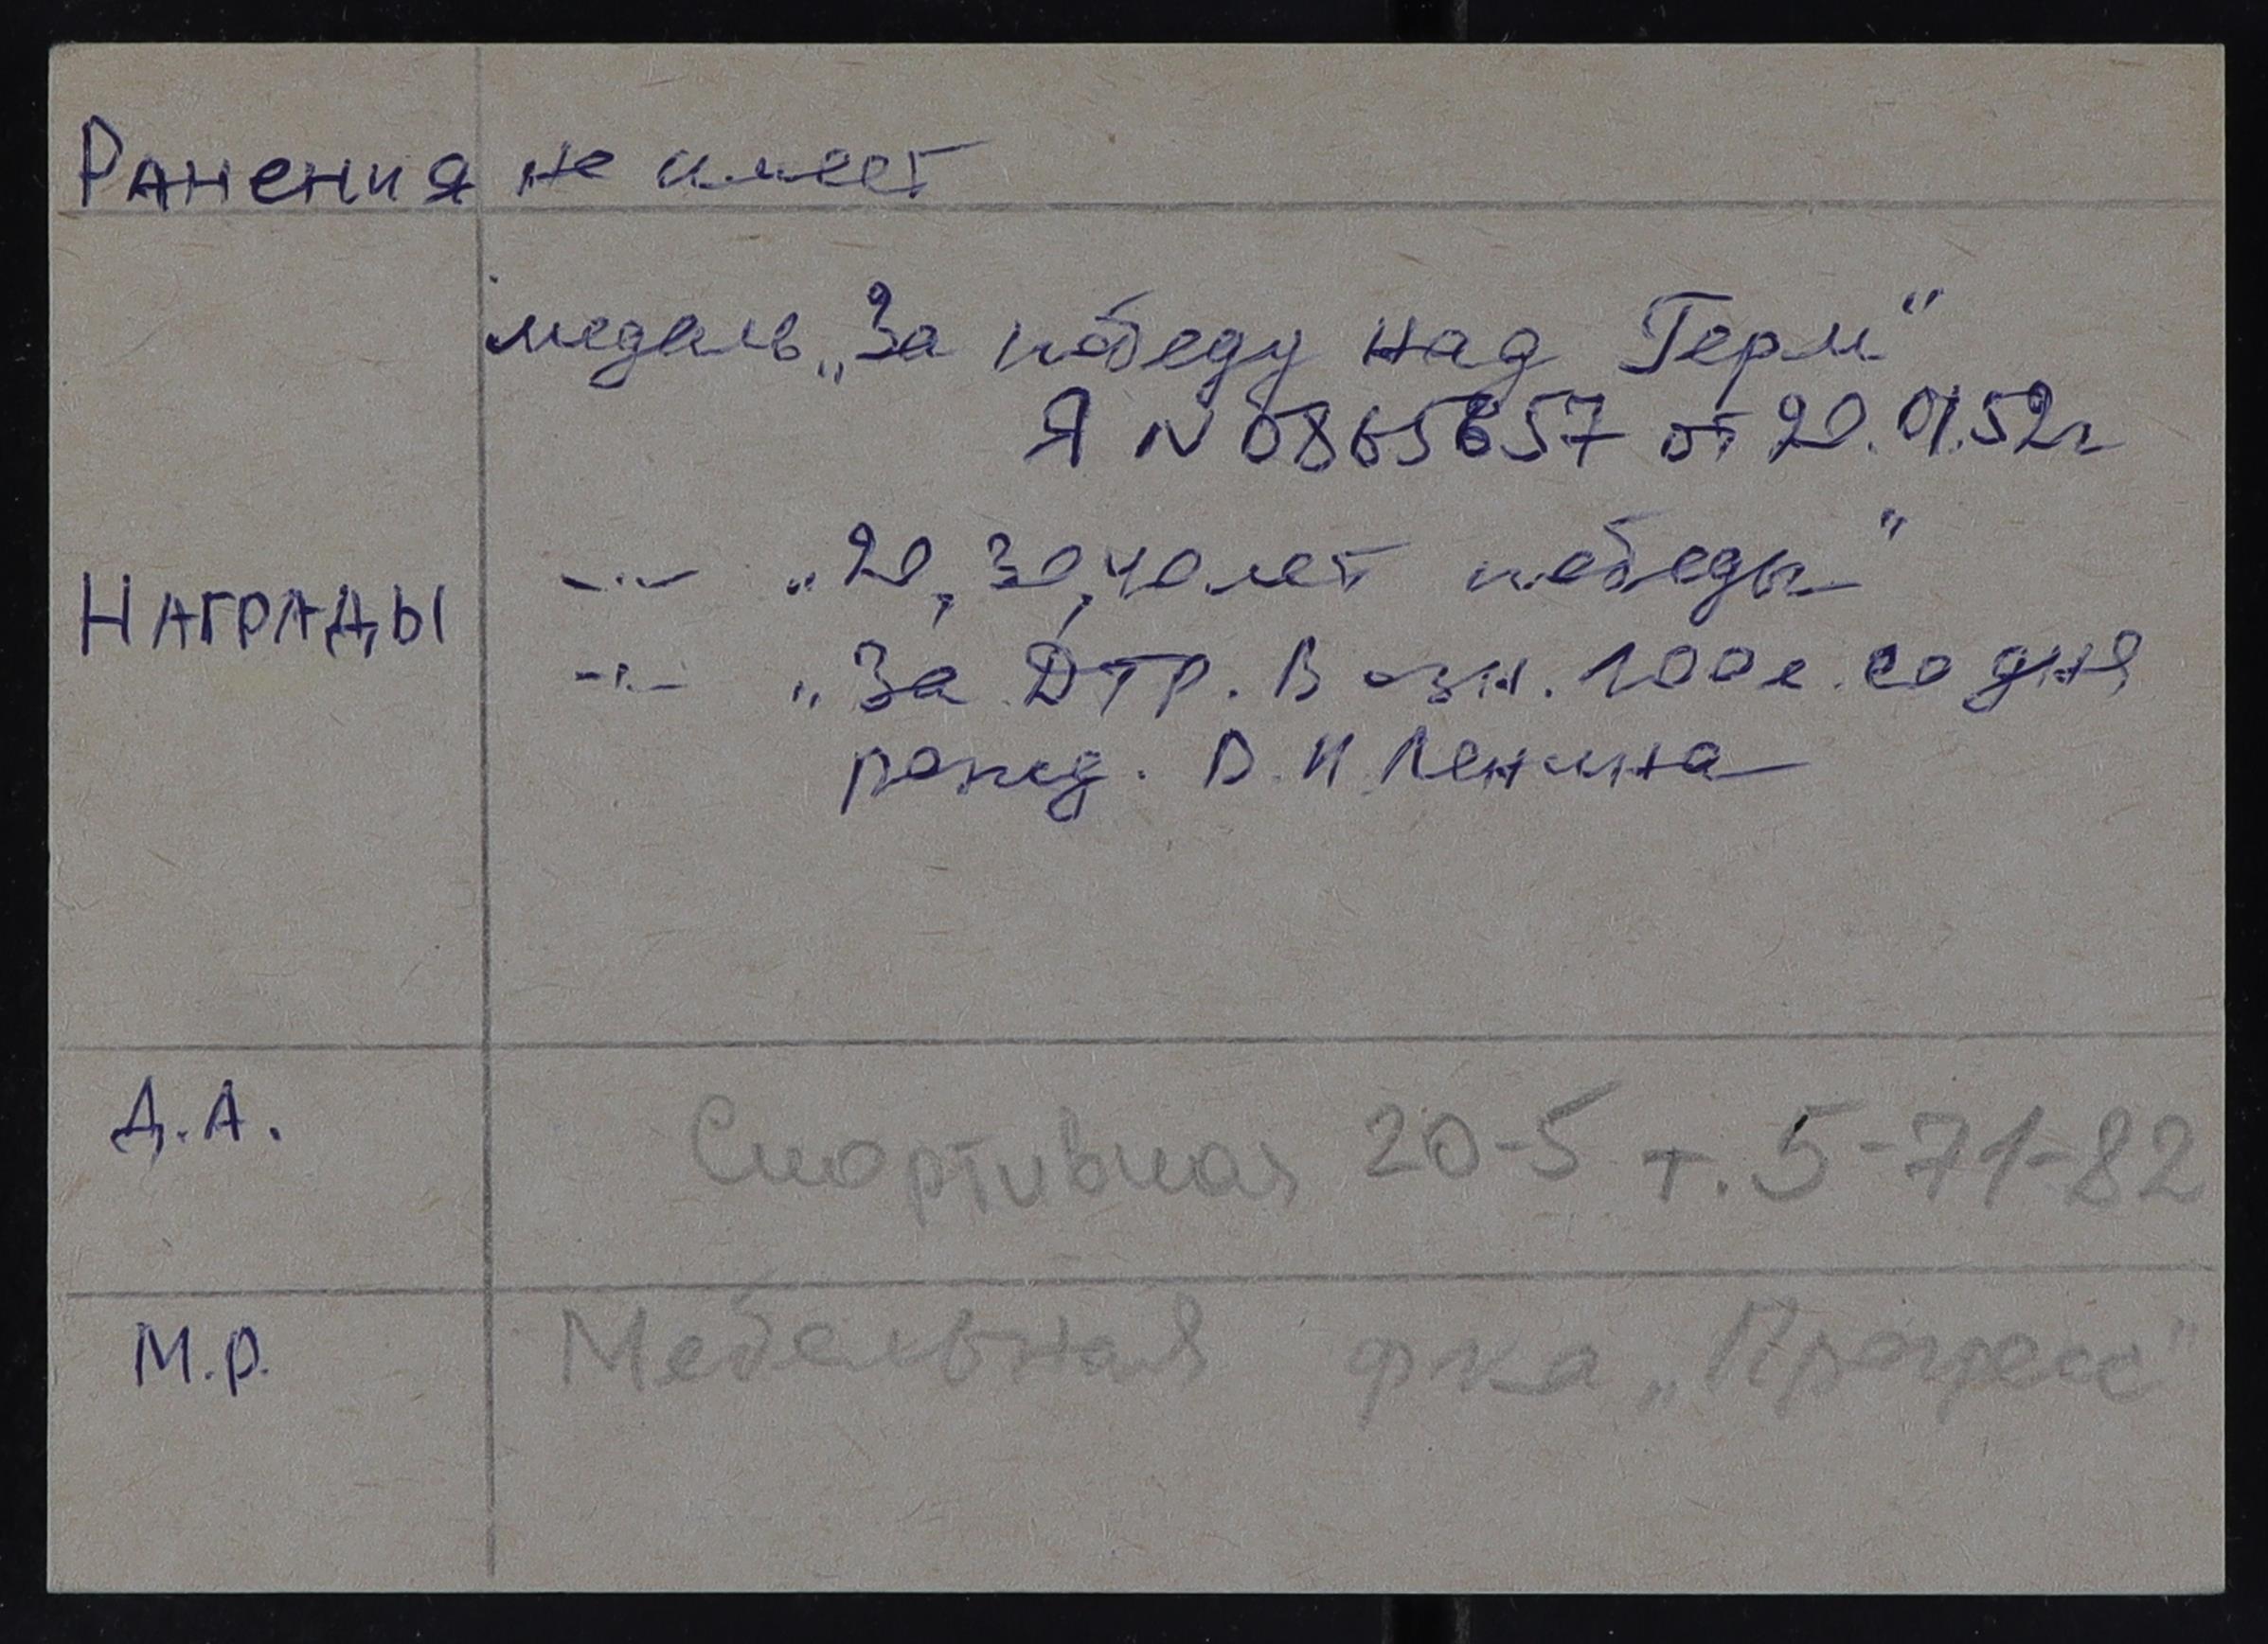 Ранения не имеет
медаль „За победу над Герм"
Я N 0865657 от 20.01.52г
-"- „20, 30, 40 лет победы"
Награды
-"- „За Д тр. В озн. 100л. со дня
рожд. В.И Ленина
Д.А. Спортивная 20-5 т. 5-71-82
М.р. Мебельная ф-ка „Прогресс"